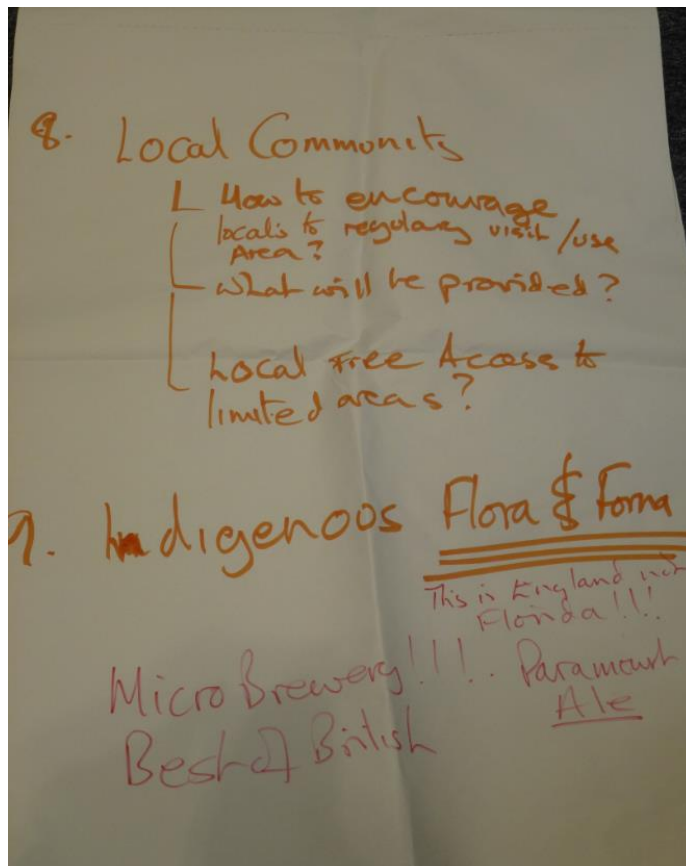 8. Local Community
How to encourage
locals to regulary visit/use
Area?
What will be provided?
Local Free Access to
limited areas?
9. Indigenoos Flora & Forna
This is England not
Florida!!!
Micro Brewery!!!. Paramount
Ale
Best of British